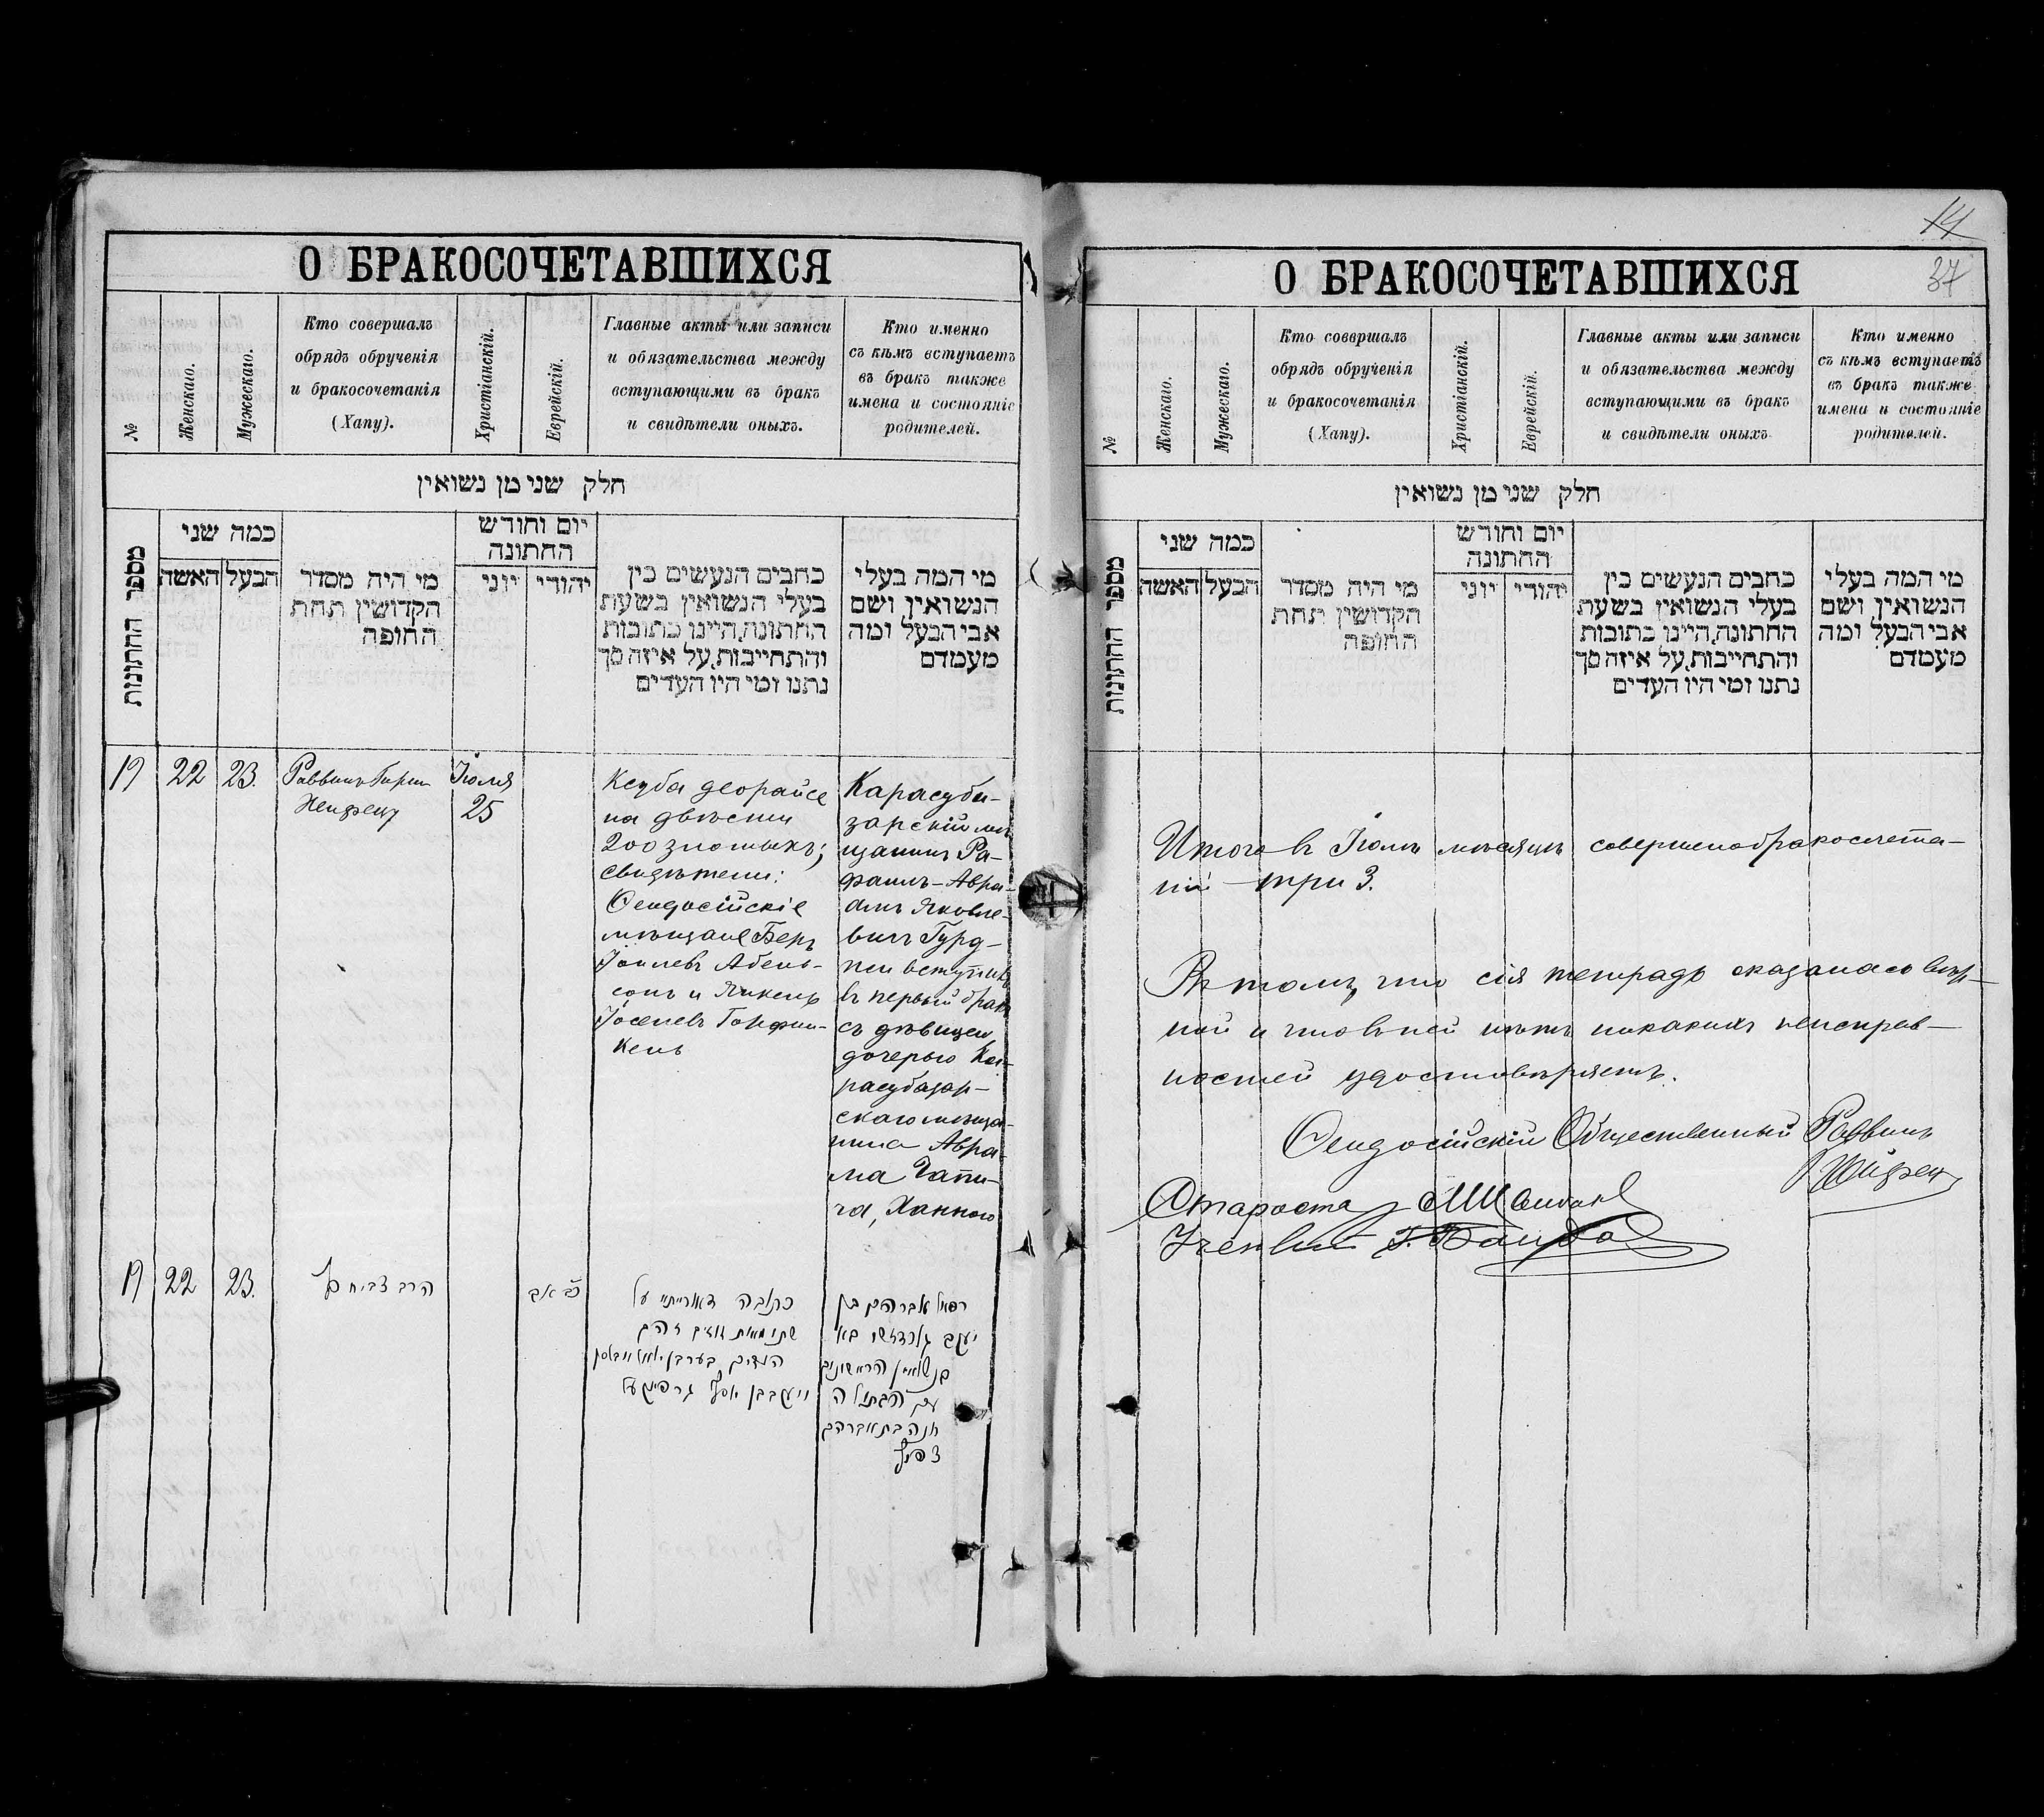 О БРАКОСОЧЕТАВШИХСЯ
№
Женскаго.
Мужескаго.
Кто совершалъ
обрядъ обрученія
и бракосочетанія
(Хапу).
Христіанскій.
Еврейскій.
Главные акты или записи
и обязательства между
вступающими въ бракъ
и свидѣтели оныхъ.
Кто именно
съ кѣмъ вступаетъ
въ бракъ также
имена и состояніе
родителей.
חלק שני מן נשואין
מספר החתונות
כמה שני
האשה
הבעל
מי היה מסדר
הקדושין תחת
החופה
יום וחודש
החתונה
יוני
יהודי
כתבים הנעשים בין
בעלי הנשואין בשעת
החתונה, היינו כתובות
והתחייבות, על איזה סך
נתנו ומי היו העדים
מי המה בעלי
הנשואין ושם
אבי הבעל ומה
מעמדם
19
22
23.
Раввинъ
Іюля
25
Ксуба деорайсе
на двѣсти
200 злотыхъ;
свидѣтели:
Ѳеодосійскіе
мѣщане Беръ
Іоилевъ Абель-
сонъ и Янкель
Іоселевъ Гарфин-
кель
Карасуба-
зарскій мѣ-
щанинъ Ра-
фаилъ-Авра-
амъ Яковле-
вичъ Гурд-
жи вступилъ
въ первый бракъ
съ дѣвицею,
дочерью Ка-
расубазар-
скаго мѣща-
нина Авра-
ма Чапи-
ча, Ханною
19
22
23.
הרב
כ׳ אב
כתובה דאורייתא על
שתי מאות זוזים
העדים בער בן
ויעקב בן יוסף
רפאל אברהם בן
יעקב
בנשואין הראשונים
עם הבתולה
חנה בת אברהם
О БРАКОСОЧЕТАВШИХСЯ
14
37
№
Женскаго.
Мужескаго.
Кто соввршалъ
обрядъ обрученія
и бракосочетанія
(Хапу).
Христіанскій.
Еврейскій.
Главные акты или записи
и обязательства между
вступающими въ бракъ
и свидѣтели оныхъ
Кто именно
съ кѣмъ вступаетъ
въ бракъ также
имена и состояніе
родителей.
חלק שני מן נשואין
מספר החתונות
כמה שני
האשה
הבעל
מי היה מסדר
הקדושין תחת
החופה
יום וחודש
החתונה
יוני
יהודי
כתבים הנעשים בין
בעלי הנשואין בשעת
החתונה, היינו כתובות
והתחייבות, על איזה סך
נתנו ומי היו העדים
מי המה בעלי
הנשואין ושם
אבי הבעל ומה
מעמדם
Итого въ Іюлѣ мѣсяцѣ совершено бракосочета-
ній три 3.
Въ томъ, что сія тетрадь оказалась вѣр-
ной и что въ ней нѣтъ никакихъ неисправ-
ностей удостовѣряетъ.
Ѳеодосійскій Общественный Раввинъ
Староста
Ученый